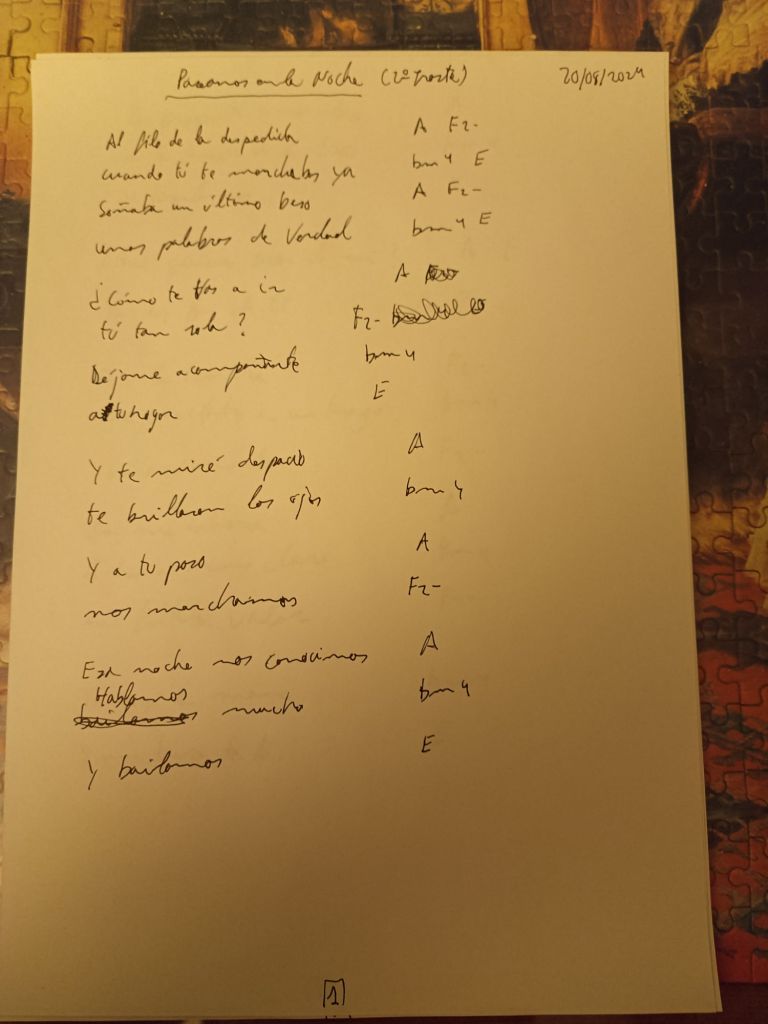 Paseamos en la Noche (2ª parte) 20/08/2024
Al filo de la despedida A F2-
cuando tú te marchabas ya bm4 E
Soñaba un último beso A F2-
unas palabras de verdad bm4 E
¿Cómo te vas a ir A
tú tan sola? F2-
Déjame acompañarte bm4
a tu hogar E
Y te miré despacio A
te brillaron los ojos bm4
Y a tu paso A
nos marchamos F2-
Esa noche nos conocimos A
Hablamos mucho bm4
Y bailamos E
1